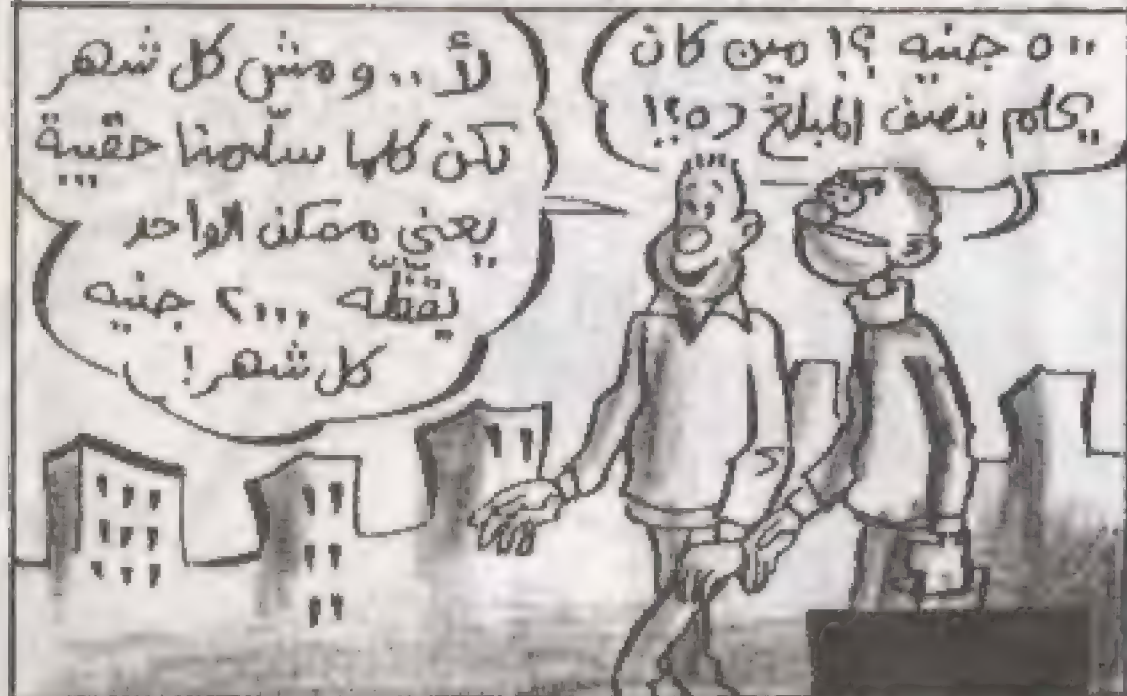 ٥٠٠ جنيه ؟! مين كان
يحلم بنصف المبلغ ده ؟!
لأ .. ومش كل شهر
لكن كلما سلمنا حقيبة
يعني ممكن الواحد
يقبضله ٢٠٠٠ جنيه
كل شهر !